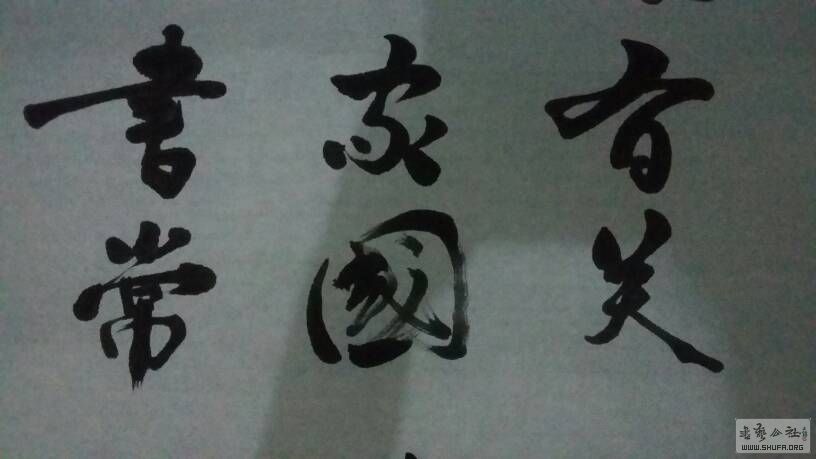 有关
家國
書常
書藝公社
WWW.SHUFA.ORG